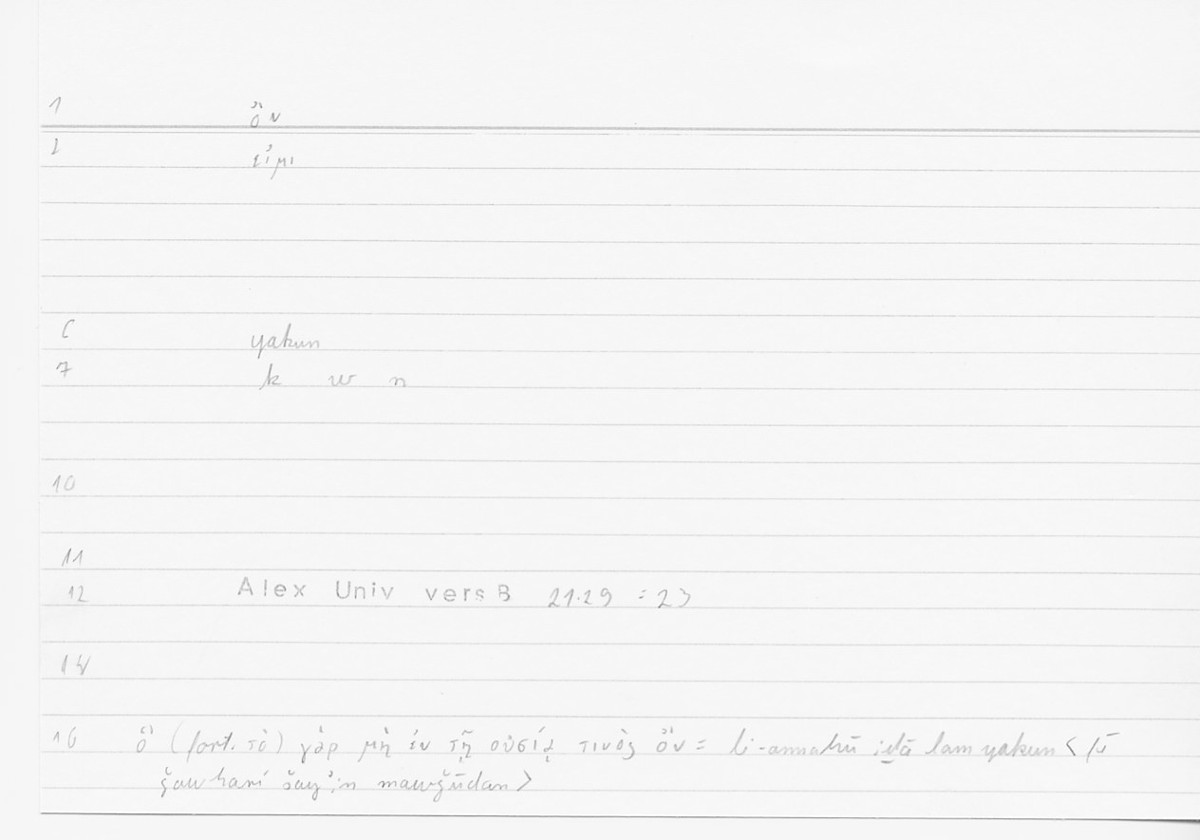 1 ὄν
2 εἰμι
6 yakun
7 k w n
10
11
12 Alex Univ vers B 21.29 = 23
14
16 ὃ (fort. τὸ) γὰρ μὴ ἐν τῇ οὐσίᾳ τινὸς ὂν = li-annahū iḏā lam yakun < fī
ǧawhari šayʾin mawǧūdan >